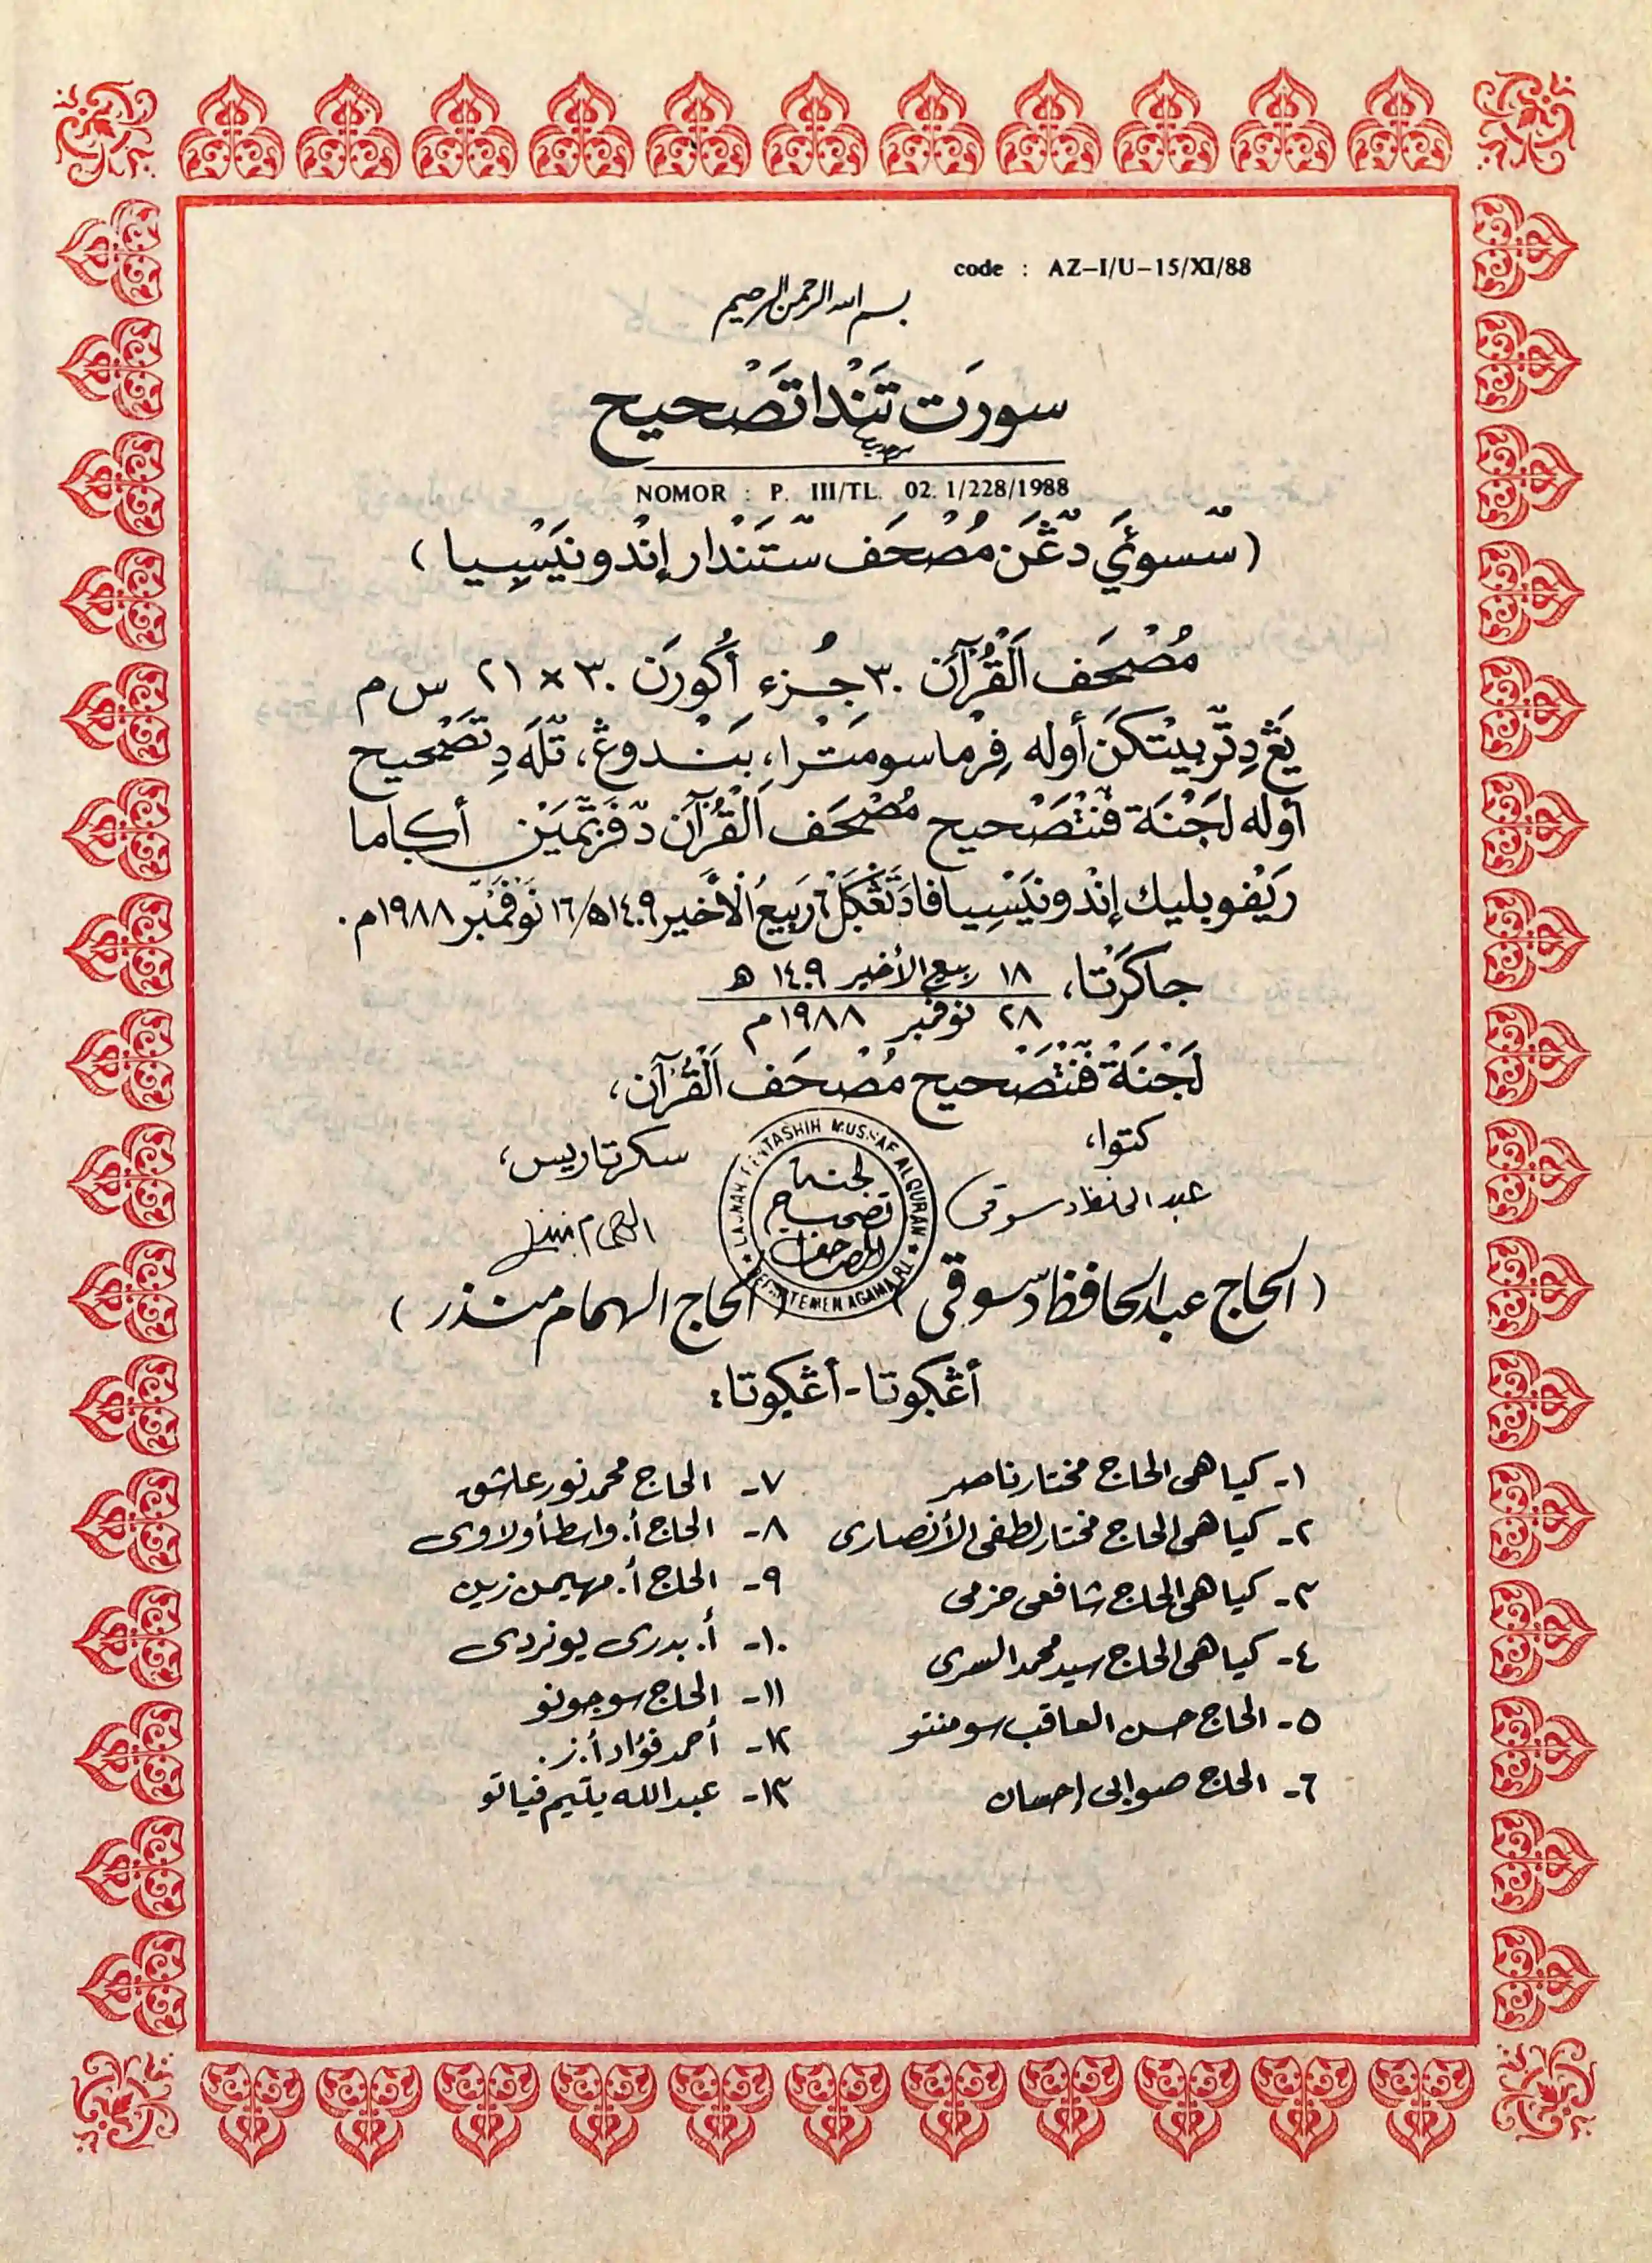 code : AZ-I/U-15/XI/88
بسم الله الرحمن الرحيم
سورَت تَنْدا تَصْحيح
NOMOR : P. III/TL. 02. 1/228/1988
(سّسوأَي دّڠَن مُصْحَف سّتَنْدار إنْدونيَسِيا)
مُصْحَف اَلْقُرْآن ٣٠ جُزء أُكورَن ٣٠ × ٢١ س م
يَڠ دِتّربيتْكَن أوله فِرْما سومَتْرا، بَنْدوڠ، تّلَه دِتَصْحيح
أوله لَجْنَة فّنْتَصْحيح مُصْحَف اَلْقُرْآن دّفَرْتّمَيْن أكاما
رَيْفوبليك إنْدونيَسِيا فادَ تَڠْكَل ٦ رَبيعُ الْأَخير ١٤٠٩ه/١٦ نَوْفَمْبّر ١٩٨٨م.
جاكَرْتا، ١٨ ربيع الأخير ١٤٠٩ ه
٢٨ نوفمبر ١٩٨٨م
لَجْنَة فّنْتَصْحيح مُصْحَف اَلْقُرْآن،
كتوا،
سكرتاريس،
LAJNAH PENTASHIH MUSHAF ALQURAN
لجنة
تصحيح
المصاحف
DEPARTEMEN AGAMA R.I.
(الحاج عبد الحافظ دسوقى)
(الحاج الهمام منذر)
أڠكوتا - أڠكوتا:
١- كياهى الحاج مختار ناصر
٢- كياهى الحاج مختار لطفى الأنصارى
٣- كياهى الحاج شافعى حزمى
٤- كياهى الحاج سيد محمد السرى
٥- الحاج حسن العاقب سومنتو
٦- الحاج صوابى إحسان
٧- الحاج محمد نور عاشق
٨- الحاج أ. واسط أولاوى
٩- الحاج أ. مهيمن زين
١٠- أ. بدرى يونردى
١١- الحاج سوجونو
١٢- أحمد فؤاد أ. ز.
١٣- عبد الله يتيم فياتو